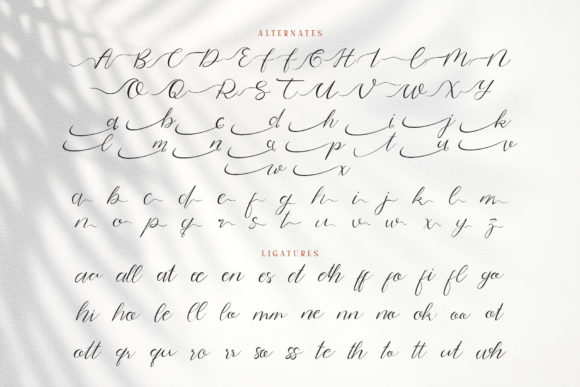 ALTERNATES
A B C D E F F G H I L M N
O Q R S T U V W X Y
a b c d h i j k
l m n o p t u v
w x
a b c d e f g h i j k l m
n o p q r s t u v w x y z
LIGATURES
aa all at ee en es et eth ff fo fi fl go
hi ho le ll lo mm ne nn no ok oo ot
ott qr qu ro rr so ss te th to tt ut wh